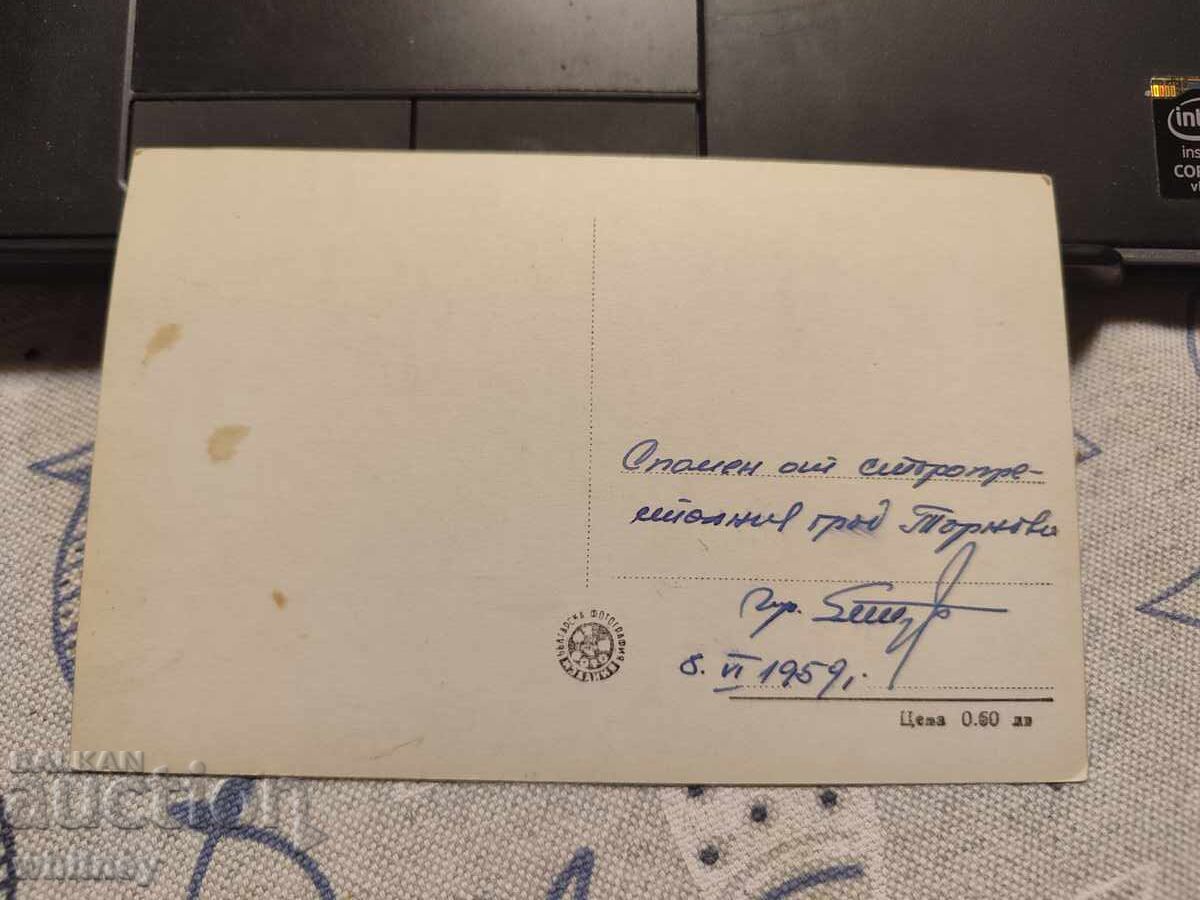 intel
Спомен от старопре-
столния град Търново
8. VI 1959 г.
БЪЛГАРСКА ФОТОГРАФИЯ
Цена 0.60 лв
BALKAN
auction
whitney